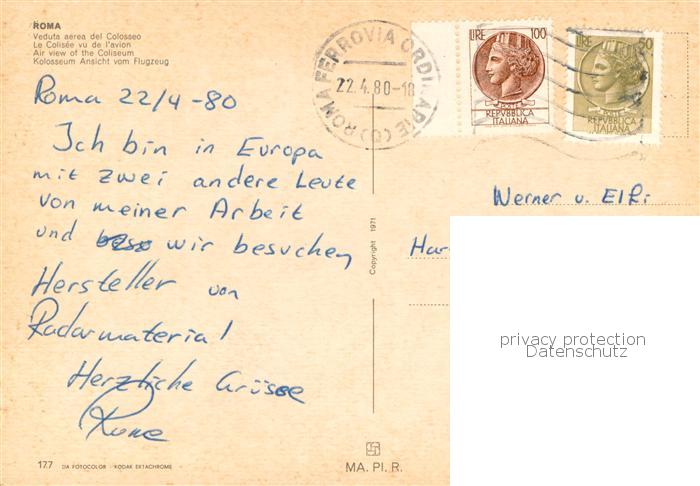 ROMA
Veduta aerea del Colosseo
Le Colisée vu de l'avion
Air view of the Coliseum
Kolosseum Ansicht vom Flugzeug
ROMA FERROVIA ORDINARIE (6)
22.4.80-18
LIRE 100
POSTE
REPVBBLICA
ITALIANA
LIRE 50
POSTE
REPVBBLICA
ITALIANA
Roma 22/4-80
Ich bin in Europa
mit zwei andere Leute
von meiner Arbeit
und wir besuchen
Hersteller von
Radarmaterial
Herzliche Grüsse
Rune
Copyright 1971
Werner u. Elfi
Har
privacy protection
Datenschutz
177 DA FOTOCOLOR - KODAK EKTACHROME
MA. PI. R.